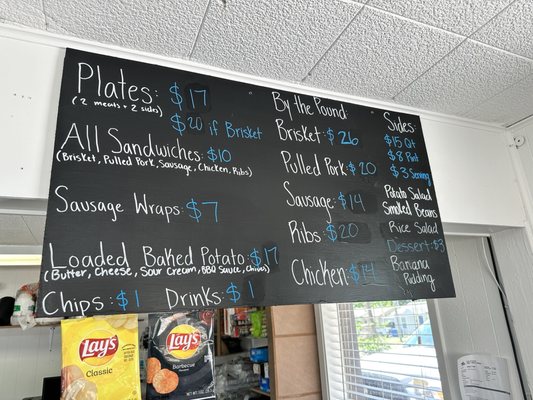 Plates: $17
(2 meats + 2 sides)
$20 if Brisket
All Sandwiches: $10
(Brisket, Pulled Pork, Sausage, Chicken, Ribs)
Sausage Wraps: $7
Loaded Baked Potato: $17
(Butter, Cheese, Sour Cream, BBQ Sauce, Chives)
Chips: $1 Drinks: $1
By the Pound:
Brisket: $26
Pulled Pork $20
Sausage: $14
Ribs: $20
Chicken: $14
Sides:
$15 Qt
$8 Pint
$3 Serving
Potato Salad
Smoked Beans
Rice Salad
Dessert: $3
Banana
Pudding
Lay's
Classic
Lay's
Barbecue